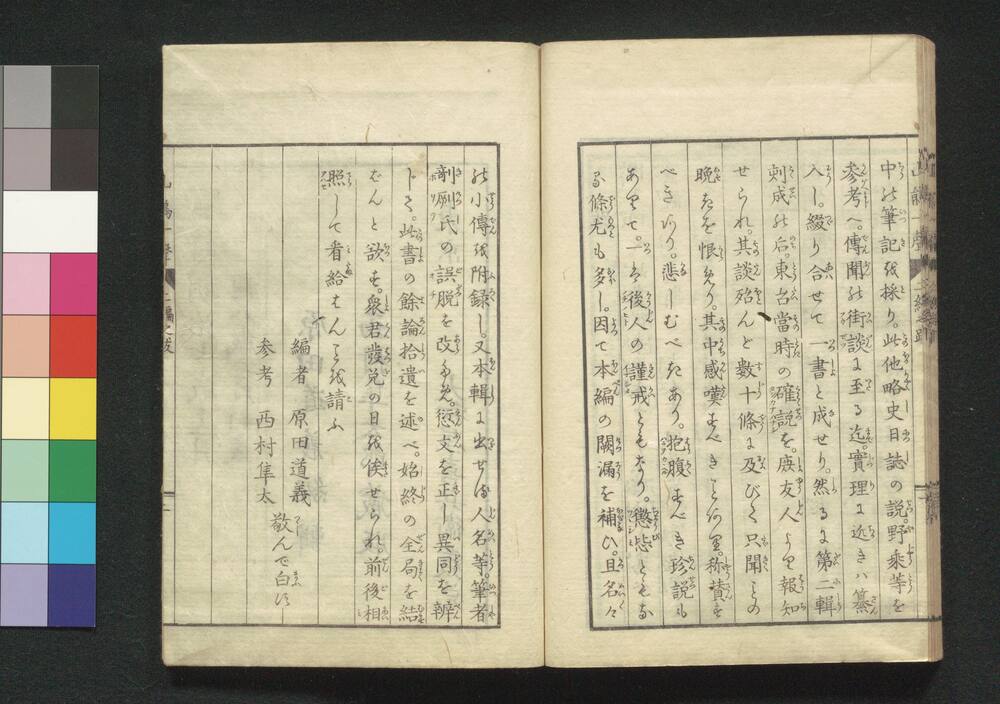 中の筆記を採り。此他略史日誌の説。野乗等を
参考へ。傳聞の街談に至る迄。實理に近きハ纂
入し。綴り合せて一書と成せり。然るに第二輯
刺成の后。東台當時の確説を。庚友人より報知
せられ。其談殆んど數十條に及びて只聞ことの
晩きを恨めり。其中感嘆すべきことあり。称賛す
べきあり。悲しむべきあり。抱腹すべき珍説も
ありて。一は後人の謹戒ともなり。懲惩ともな
る條尤も多し。因て本編の闕漏を補ひ。且名々
の小傳を附録し。又本輯に出せる人名等。筆者
剞劂氏の誤脱を改ため。愆文を正し異同を辨
じて。此書の餘論拾遺を述べ。始終の全局を結
ばんと欲す。衆君發兌の日を俟せられ。前後相
照して看給はんことを請ふ
編者 原田道義
参考 西村隼太
敬んで白す